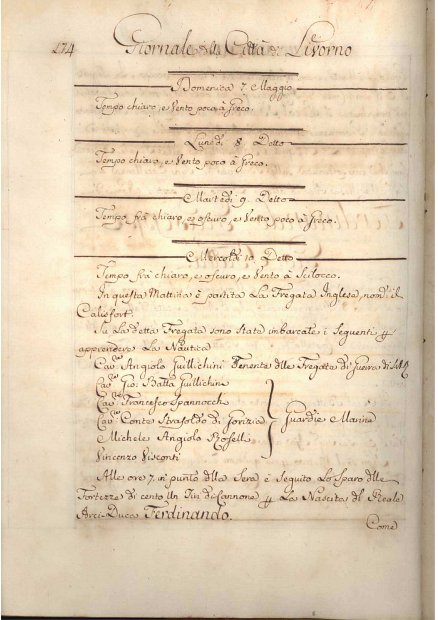 174 Giornale della Città di Livorno
Domenica 7 Maggio
Tempo chiaro, e Vento poco à Greco.
Lunedì 8 Detto
Tempo chiaro, e Vento poco à Greco.
Martedì 9. Detto
Tempo frà chiaro, e oscuro, e Vento poco à Greco.
Mercoldì 10 Detto
Tempo frà chiaro, e oscuro, e Vento à Scilocco.
In questa Mattina è partita La Fregata Inglese, nom: il
Calisfort.
Su La detta Fregata sono stati imbarcati i Seguenti
apprendere La Nautica
Cav. Angiolo Guillichini Tenente delle Fregata di Guerra di
Cav. Gio: Batta Guillichini
Cav. Francesco Spannocch
Cav. Conte Strasoldo di Gorizia
Guardie Marine
Michele Angiolo Rosell
Vincenzo Visconti
Alle ore 7. in punto della Sera è Seguito Lo Sparo delle
Fortezze di cento Un Tiri di Cannone La Nascita del Reale
Arci-Duca Ferdinando.
Come